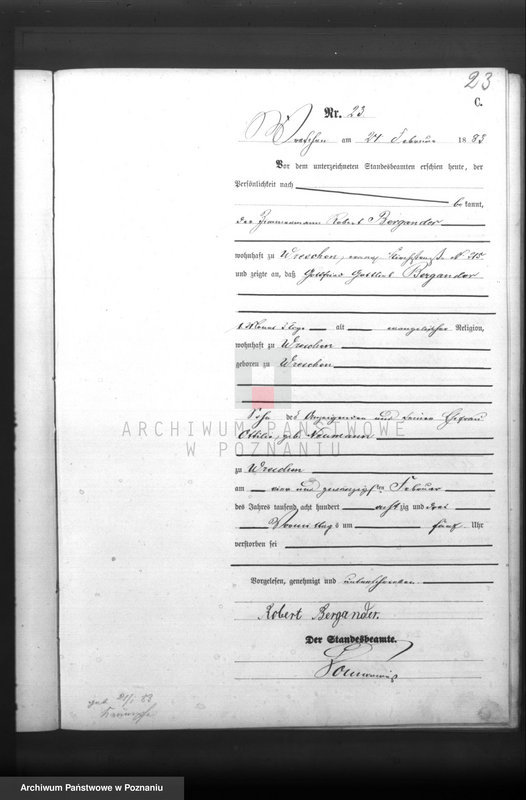 23
C.
Nr. 23
Wreschen am 24 Februar 1883
Vor dem unterzeichneten Standesbeamten erschien heute, der
Persönlichkeit nach
bekannt,
der Zimmermann Robert Bergander
wohnhaft zu Wreschen, N. 315
und zeigte an, daß Gottfried Gottlieb Bergander
1 Monat 3 Tage alt evangelischer Religion,
wohnhaft zu Wreschen
geboren zu Wreschen
Sohn des Anzeigenden und seiner Ehefrau
Ottilie, geb. Neumann
ARCHIWUM PAŃSTWOWE
W POZNANIU
zu Wreschen
am vier und zwanzigsten Februar
des Jahres tausend acht hundert achtzig und drei
Vormittags um fünf Uhr
verstorben sei
Vorgelesen, genehmigt und unterschrieben
Robert Bergander.
Der Standesbeamte.
geb 21/1 83
Archiwum Państwowe w Poznaniu